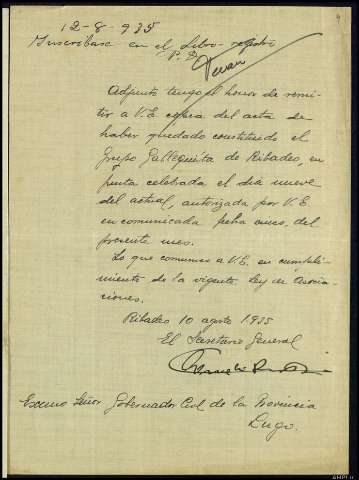 12-8-935
Inscríbase en el Libro-registro
P.D.
Adjunto tengo el honor de remi-
tir a V.E. copia del acta de
haber quedado constituido el
Grupo Galleguista de Ribadeo, en
junta celebrada el dia nueve
del actual, autorizada por V.E.
en comunicado fecha cinco, del
presente mes.
Lo que comunico a V.E. en cumpli-
miento de la vigente Ley de Asocia-
ciones.
Ribadeo 10 agosto 1935
El Secretario General
Excmo Señor Gobernador Civil de la Provincia
Lugo.